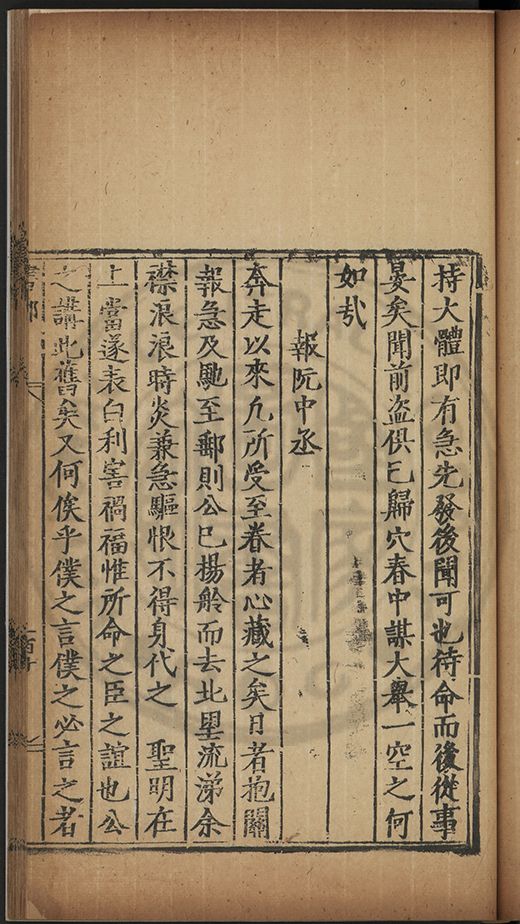 持大體即有急先發後聞可也待命而後從事
晏矣聞前盜俱已歸穴春中謀大舉一空之何
如哉
報阮中丞
奔走以來凢所受至眷者心藏之矣日者抱關
報急及馳至鄴則公已揚舲而去北望流涕余
襟浪浪時炎兼急驅恨不得身代之　聖明在
上當遂表白利害禍福惟所命之臣之誼也公
之講此舊矣又何俟乎僕之言僕之必言之者